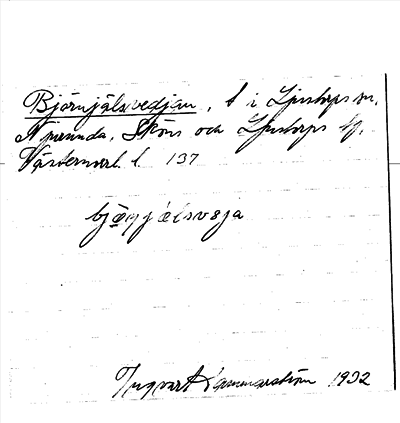 Björnjälsvedjan, t i Ljustorps sn,
Njurunda, Sköns och Ljustorps tg,
Västernorrl. l. 137
Ingvart Hammarström 1932